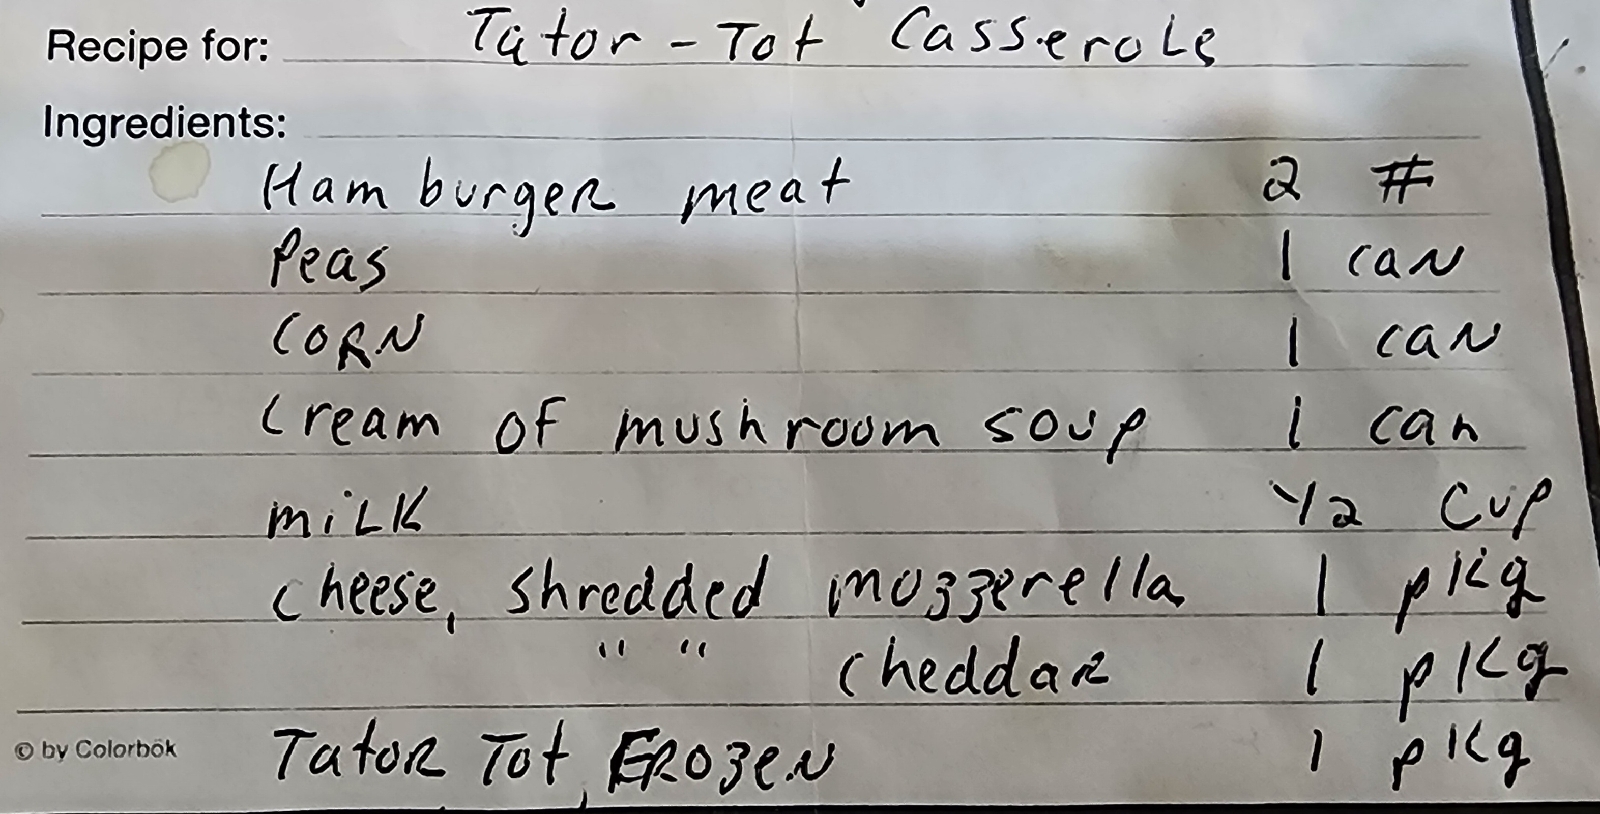 Recipe for: Tator-Tot Casserole
Ingredients:
Hamburger meat 2 #
Peas 1 can
CORN 1 can
Cream of mushroom soup 1 can
MiLK 1/2 Cup
cheese, shredded mozzerella 1 pkg
" " cheddar 1 pkg
© by Colorbök Tator Tot, FROZEN 1 pkg